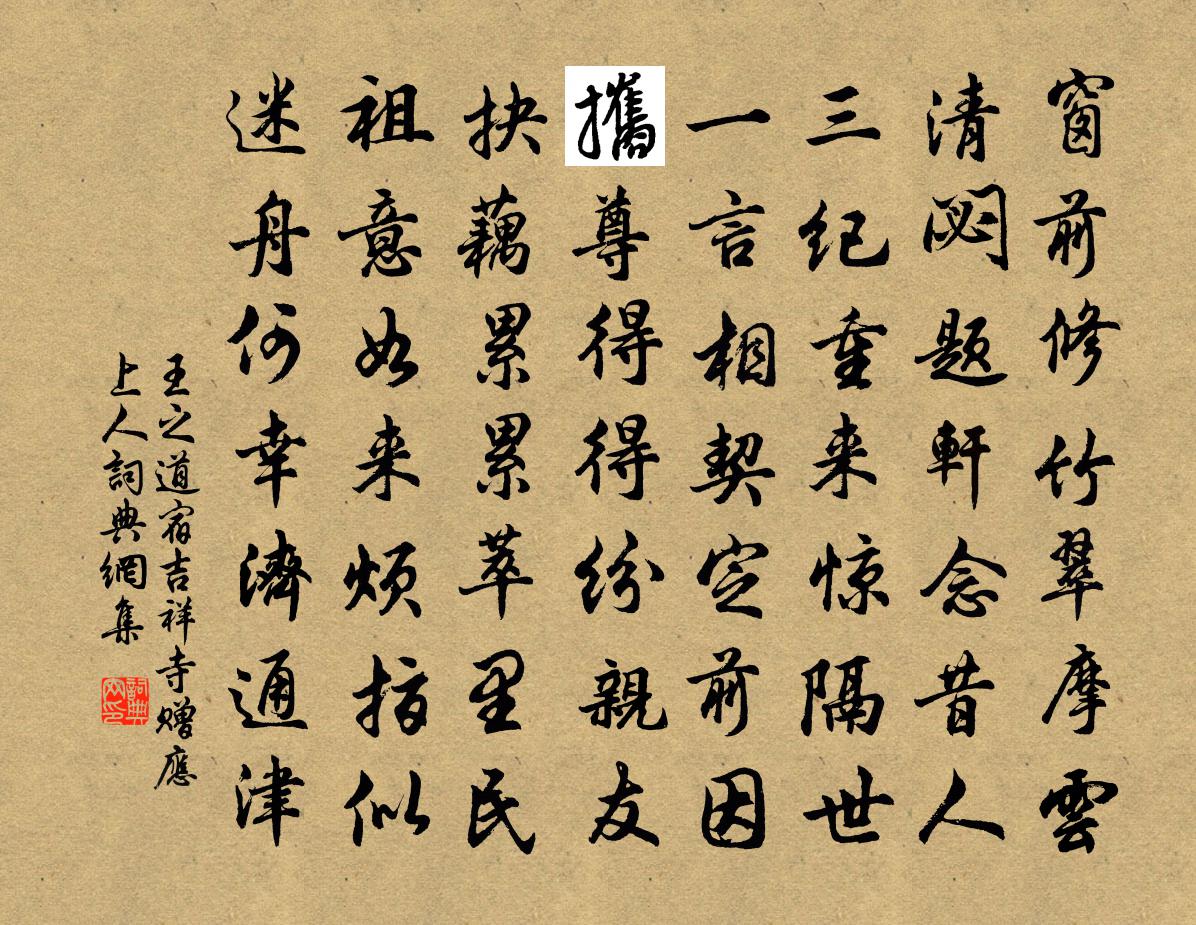 窗前修竹翠摩雲
清閟題軒念昔人
三纪重来惊隔世
一言相契定前因
攜尊得得纷親友
抉藕累累萃里民
祖意如来烦指似
迷舟何幸濟通津
王之道宿吉祥寺赠應
上人詞典網集
詞典网印